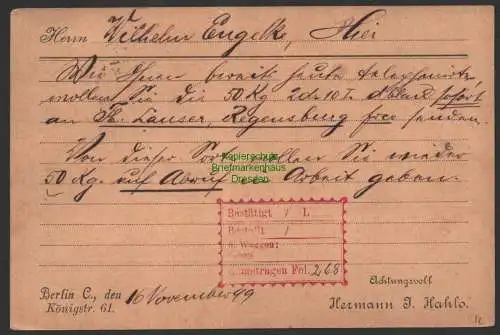 Herrn Wilhelm Engelke, Hier
Wie Ihnen bereits heute telephonirt,
wollen Sie die 50 Kg sofort
an H. Lauser, Regensburg frco senden.
Von dieser Sorte wollen Sie wieder
50 Kg. auf Abruf in Arbeit geben.
Kopierschutz
Briefmarkenhaus
Dresden
Bestätigt / L
Bestellt /
a. Waggon:
Eingetragen Fol. 268
Achtungsvoll
Berlin C., den 16 November 99
Königstr. 61.
Hermann J. Hahlo.